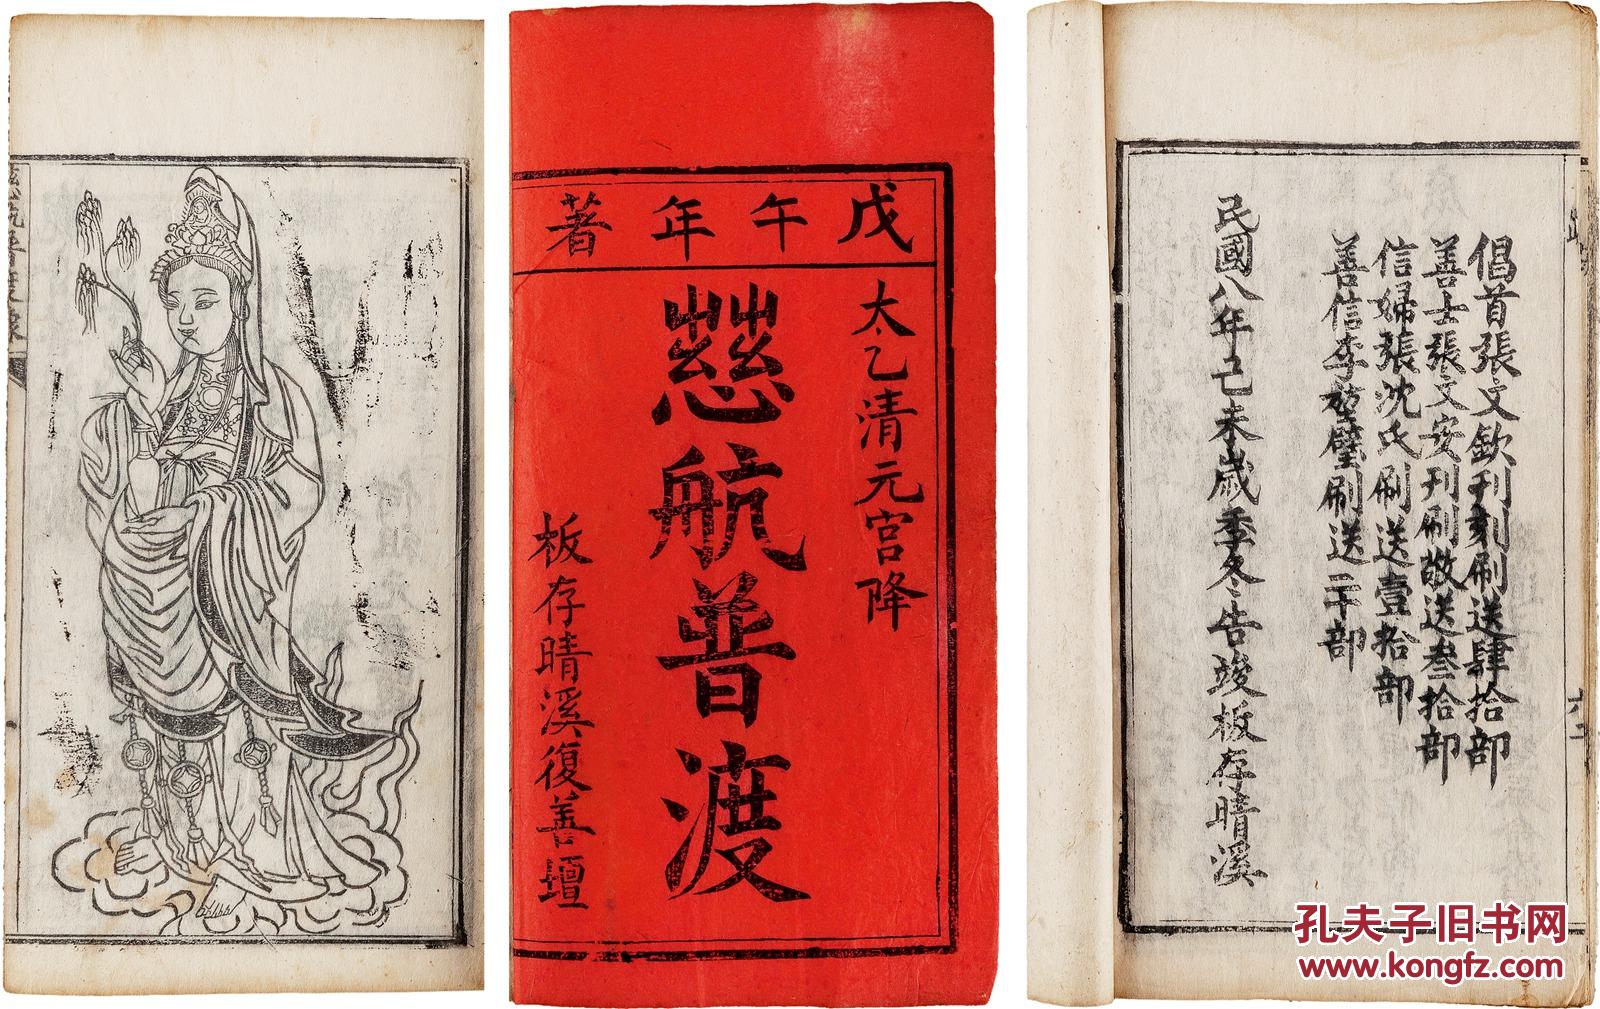 慈航普渡像
戊午年著
太乙清元宮降
慈航普渡
板存晴溪復善壇
倡首張文欽刊刻刷送肆拾部
善士張文安刊刷敬送叁拾部
信婦張沈氏刷送壹拾部
善信李 璧刷送二十部
民國八年己未歲季冬告竣板存晴溪
孔夫子旧书网
www.kongfz.com